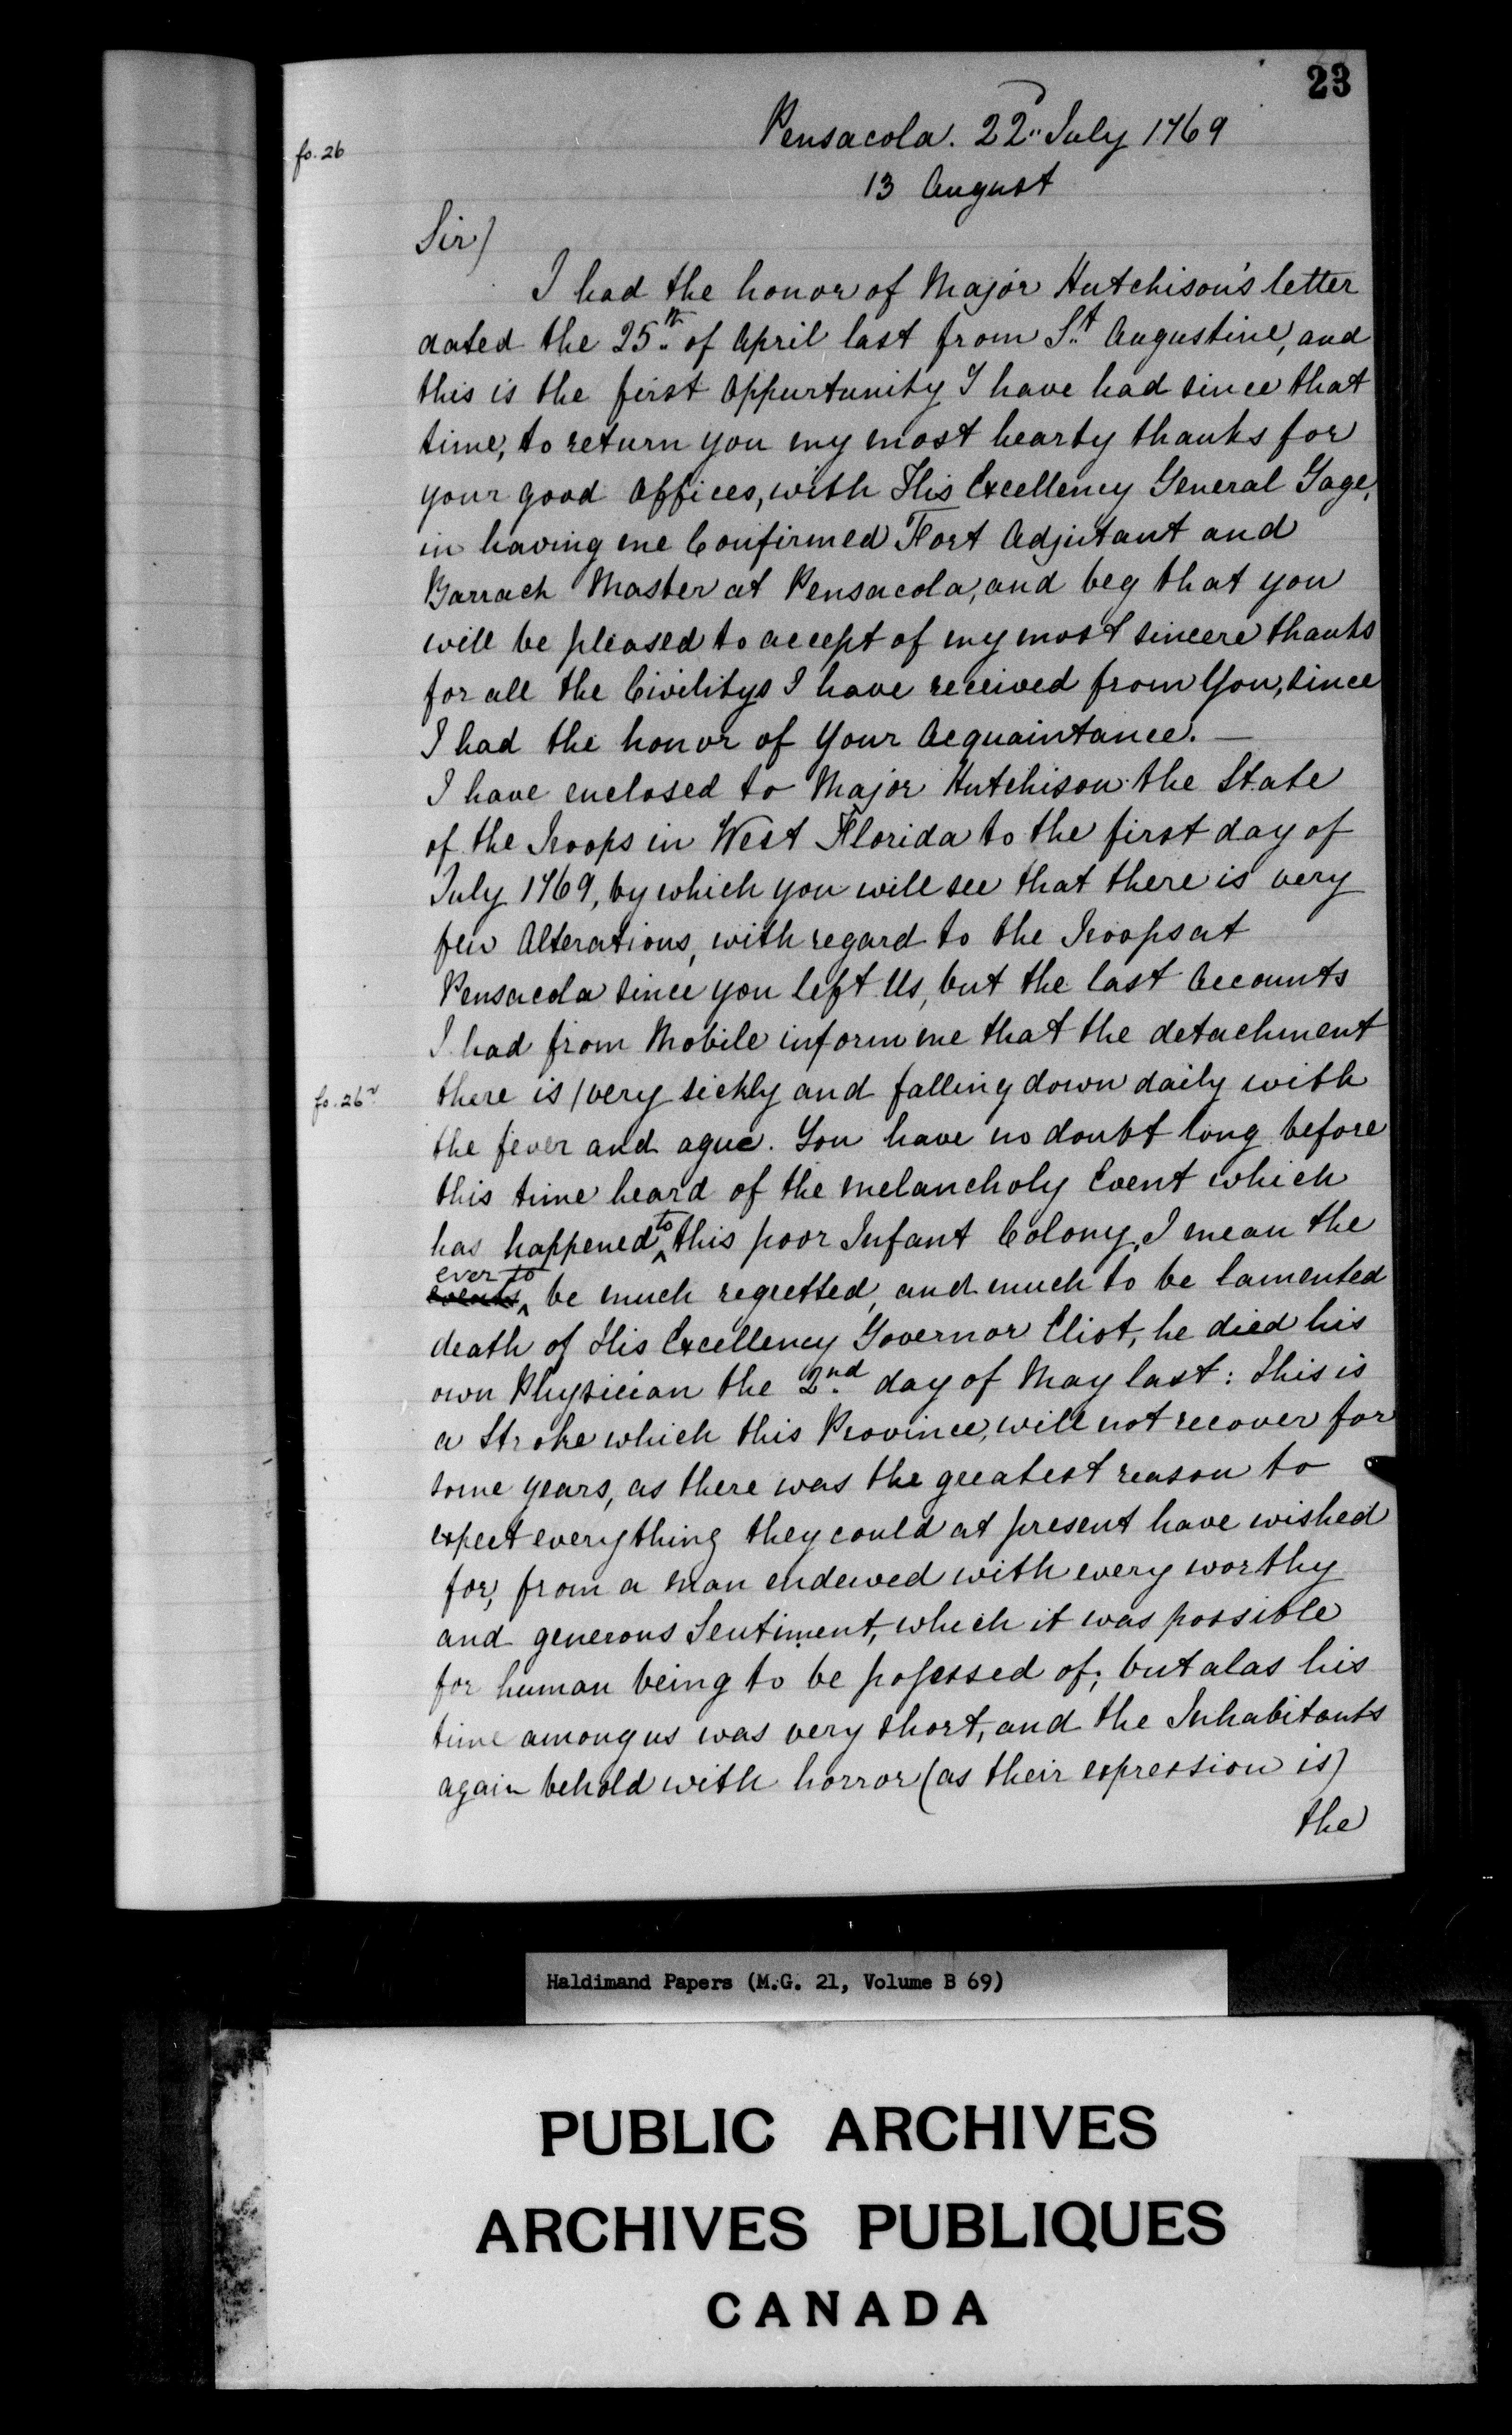 23
fo. 26
Pensacola. 22" July 1769
13 August
Sir)
I had the honor of Major Hutchison's letter
dated the 25th of April last from St. Augustine, and
this is the first oppurtunity I have had since that
time, to return you my most hearty thanks for
your good offices, with His Excellency General Gage,
in having me Confirmed Fort Adjutant and
Barrack Master at Pensacola, and beg that you
will be pleased to accept of my most sincere thanks
for all the Civilitys I have received from You, since
I had the honor of Your Acquaintance. —
I have enclosed to Major Hutchison the State
of the Troops in West Florida to the first day of
July 1769, by which you will see that there is very
few Alterations, with regard to the Troops at
Pensacola since you left Us, but the last Accounts
I had from Mobile inform me that the detachment
fo. 26v
there is / very sickly and falling down daily with
the fever and ague. You have no doubt long before
this time heard of the melancholy Event which
has happened to this poor Infant Colony, I mean the
events ever to be much regretted, and much to be lamented
death of His Excellency Governor Eliot, he died his
own Physician the 2nd. day of May last: This is
a Stroke which this Province, will not recover for
some years, as there was the greatest reason to
expect everything they could at present have wished
for, from a man endewed with every worthy
and generous Sentiment, which it was possible
for human being to be possessed of; but alas his
time among us was very short, and the Inhabitants
again behold with horror (as their expression is)
the
Haldimand Papers (M.G. 21, Volume B 69)
PUBLIC ARCHIVES
ARCHIVES PUBLIQUES
CANADA